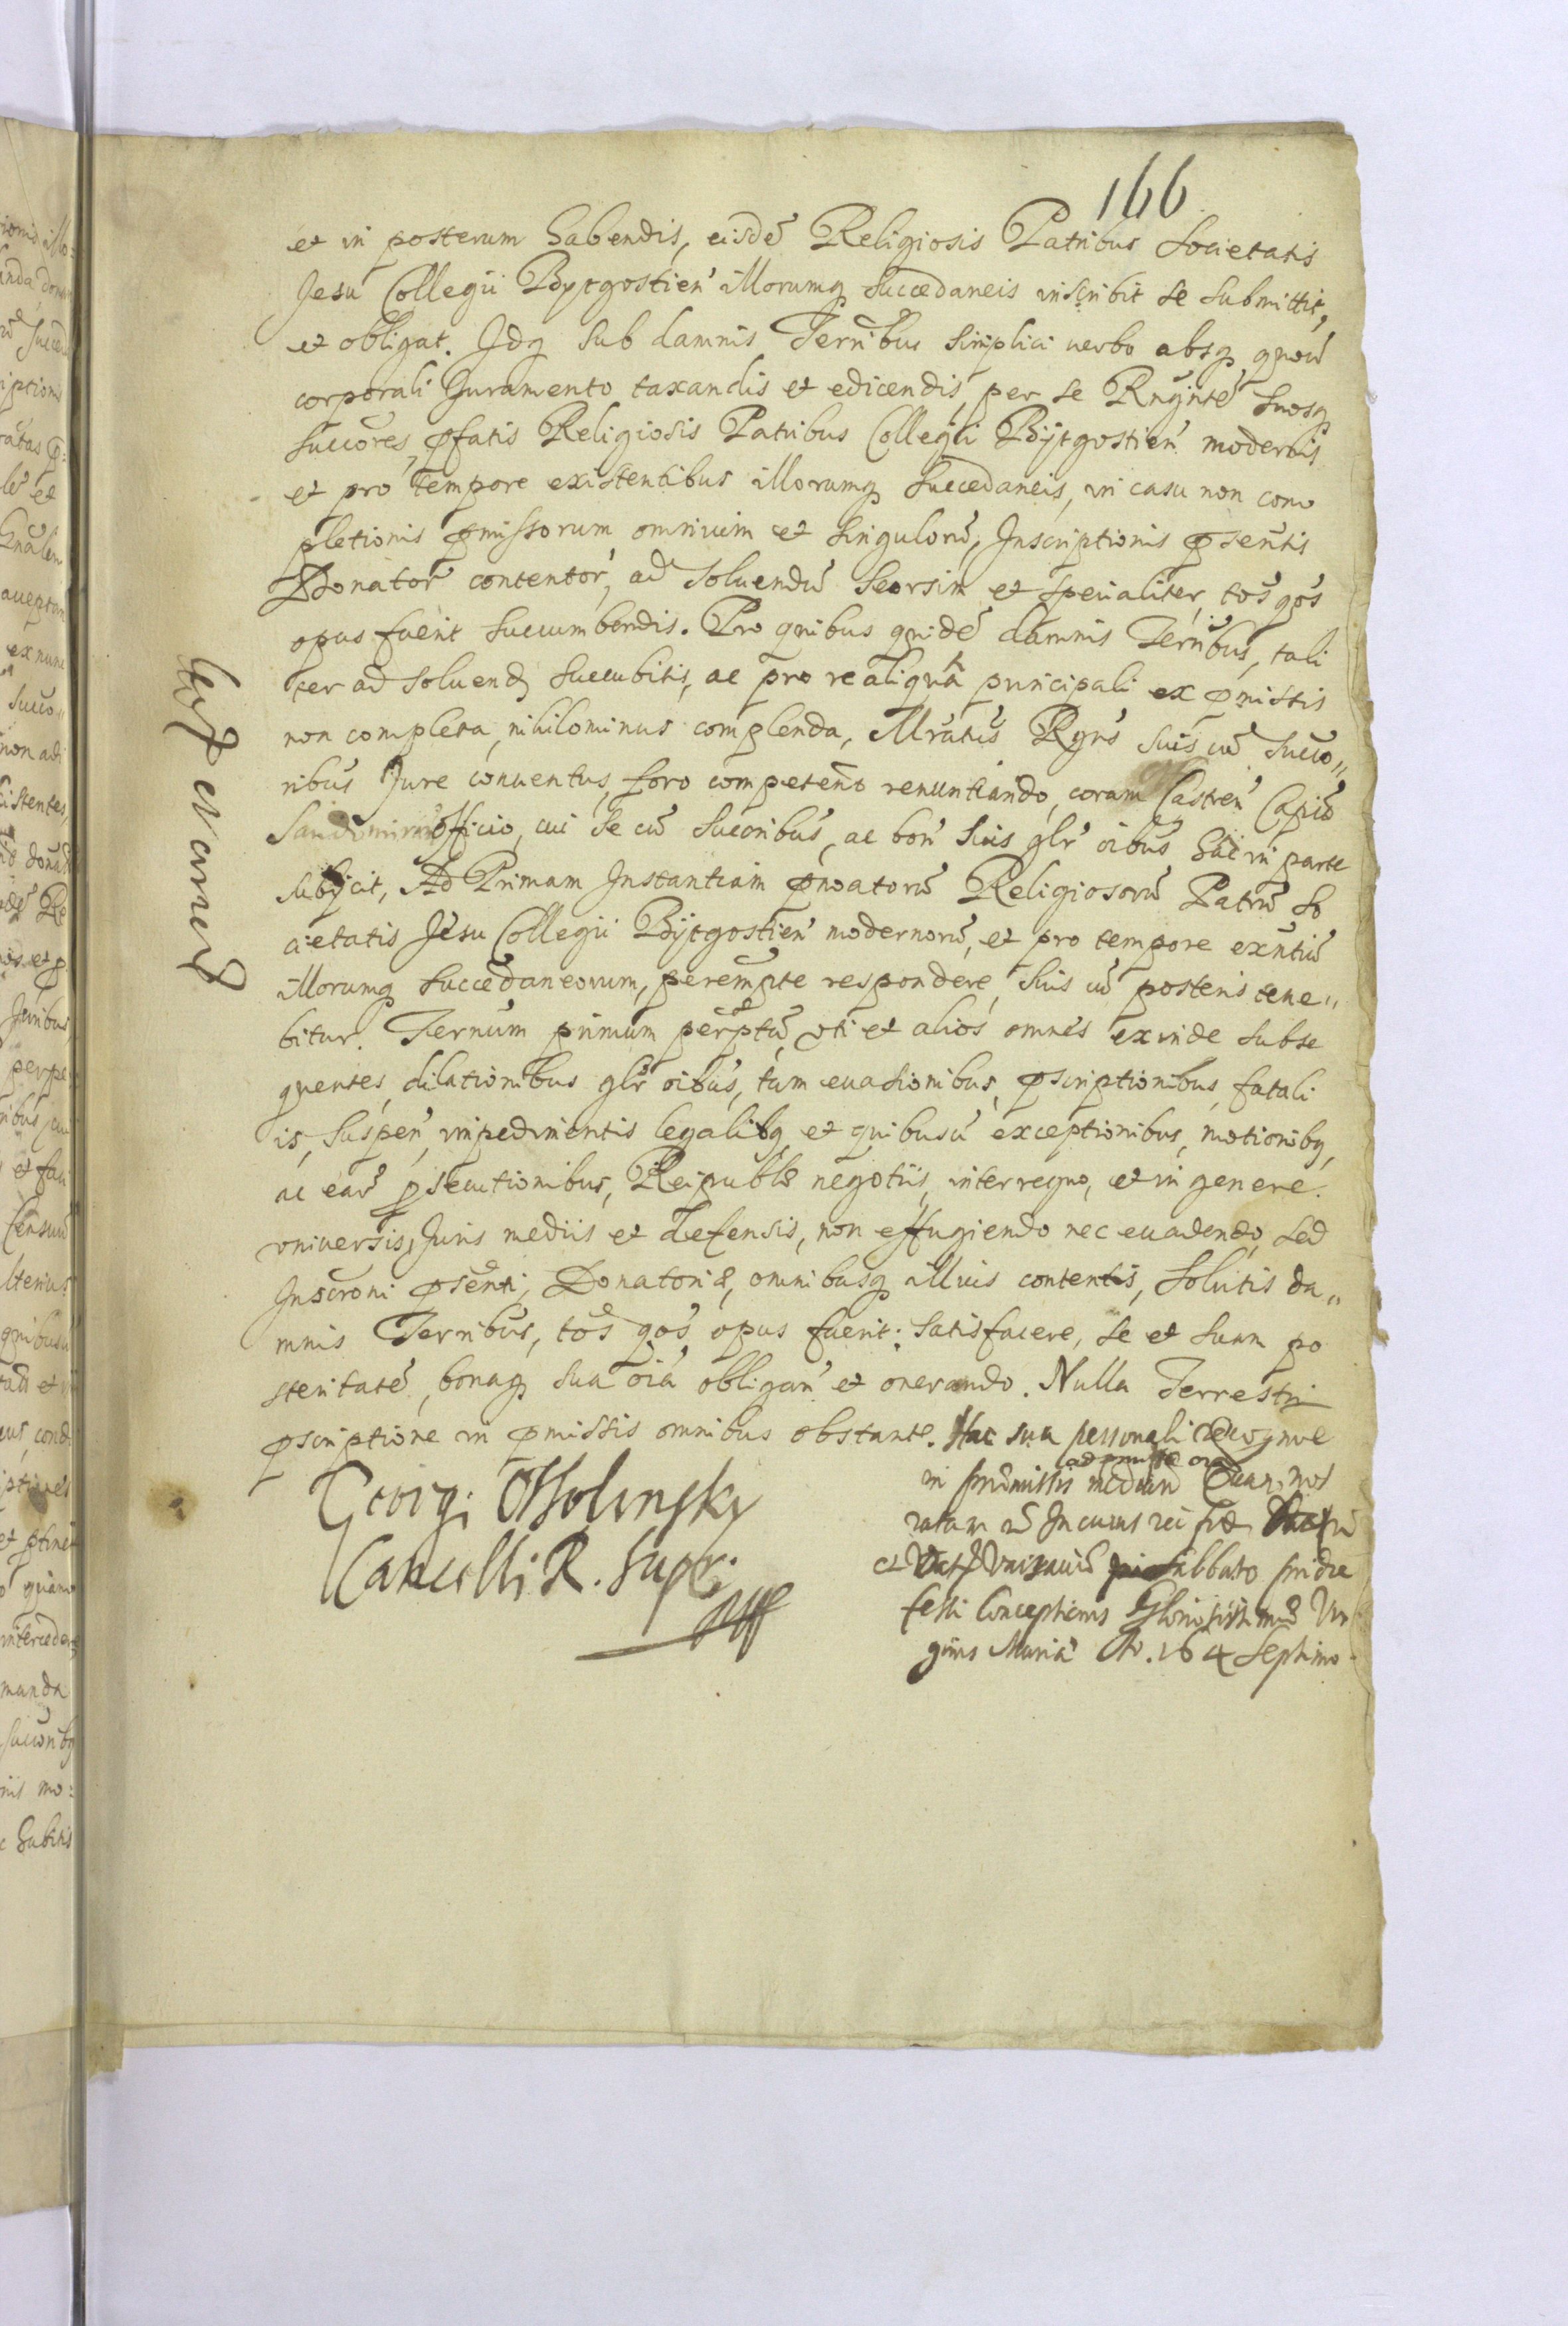 166
et in posterum habendis, eisdē Religiosis Patribus Societatis
Jesu Collegii Bydgostien̄ illorumq3 succedaneis inscribit se submittit,
et obligat. Idq3 sub damnis Terribus simplici verbo absq3 quov̄
corporali Juramento taxandis et edicendis, per se Rngntē suosq3
succōres, pfatis Religiosis Patribus Collegii Bydgostien̄ modernis
et pro tempore existentibus illorumq3 succedaneis, in casu non com
pletionis pmissorum omnium et singulorū, Inscriptionis psentis
Donator̄ contentor̄, ad soluendū seorsim et specialiter, tos̄ qos̄
opus fuerit succumbendis. Pro quibus quidē damnis Terribus, tali
ter ad soluend3 succubitis, ac pro re aliqua principali ex pmissis
non completa, nihilominus complenda, Mrātus Rgns̄ suis cū succo„
ribus Jure conuentus, foro competenō renuntiando, coram Castren̄ Capīo
Sandomirien̄ officio, cui se cū succoribus, ac bon̄ suis glr̄ oībus hāc in parte
subijcit, Ad Primam Instantiam pnoatorū Religiosorū Patrū So
cietatis Jesu Collegii Bydgostien̄ modernorū, et pro tempore exn̄tiū
illorumq3 succedaneorum, perempte respondere, suis cū posteris tene„
bitur. Ternum primum perp̄tū, vti et alios omnes exinde subse
quentes, dilationibus glr̄ oībus, tam euasionibus, pscriptionibus, fatali
is, suspen̄, impedimentis legalibq3, et quibusū exceptionibus, motionibq3,
ac ear̄ psecutionibus, Reipublē negotiis, interregno, et in genere
vniuersis, Juris mediis et defensis, non effugiendo nec euadendo, sed
Inscroni psenti, Donatoriē, omnibusq3 illius contentis, solutis da„
mnis Terribus, tos̄ qos̄ opus fuerit; satisfacere, se et suam po
steritatē, bonaq3 sua oīā obligan̄ et onerando. Nulla Terrestri
pscriptione in pmissis omnibus obstante. Hac sua personali recognoē
ad pmissa oīa
in praemissis mediante
ratam In cuius rei fid
et Sabbato pridie
festi Conceptionis Gloriosissimae Vir
ginis Mariae A. 164 septimo
Georgi Ossolinsky
Cancelli. R. Supr.